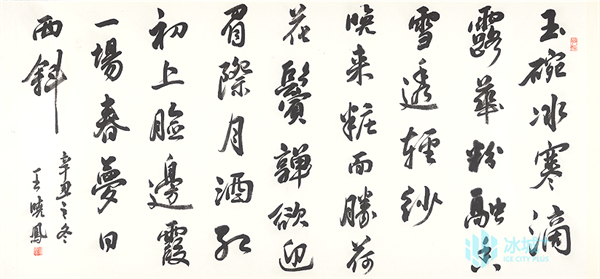 玉碗冰寒滴
露華粉融香
雪透輕紗
晚来粧面勝荷
花鬢嚲欲迎
眉際月酒红
初上臉邊霞
一場春夢日
西斜
辛丑之冬
王曉鳳
冰城+
ICE CITY PLUS